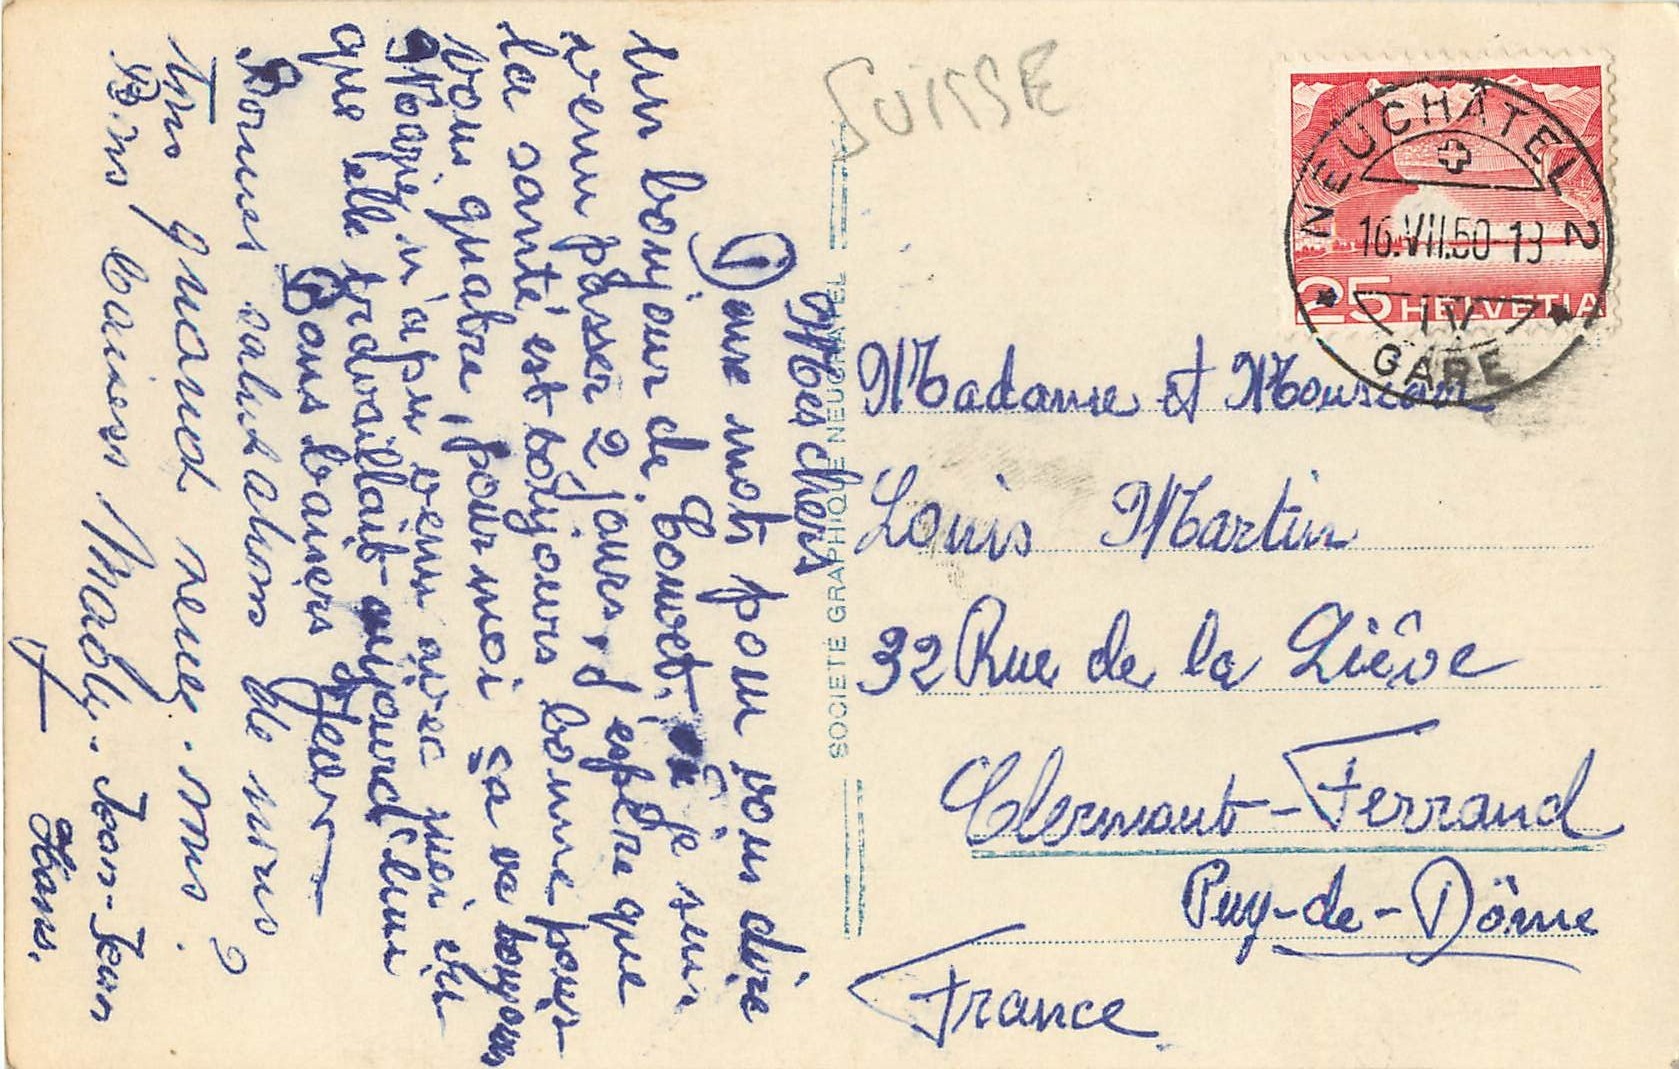 SUISSE
NEUCHÂTEL 2
16.VII.50-13
IV
GARE
25 HELVETIA
SOCIÉTÉ GRAPHIQUE NEUCHATEL
Madame et Monsieur
Louis Martin
32 Rue de la Liève
Clermont-Ferrand
Puy-de-Dôme
France
Mes chers
Deux mots pour vous dire
un bonjour de Couvet, où je suis
venu passer 2 jours, J'espère que
la santé est toujours bonne pour
vous quatre, pour moi ça va toujours
Magie n'a pu venir avec moi cher
que elle travaillait aujourd'hui
Bons baisers Jean
Bonnes salutations de nous
tous quand venez-vous ?
Bons baisers Mady. Jean-Jean
Hans.